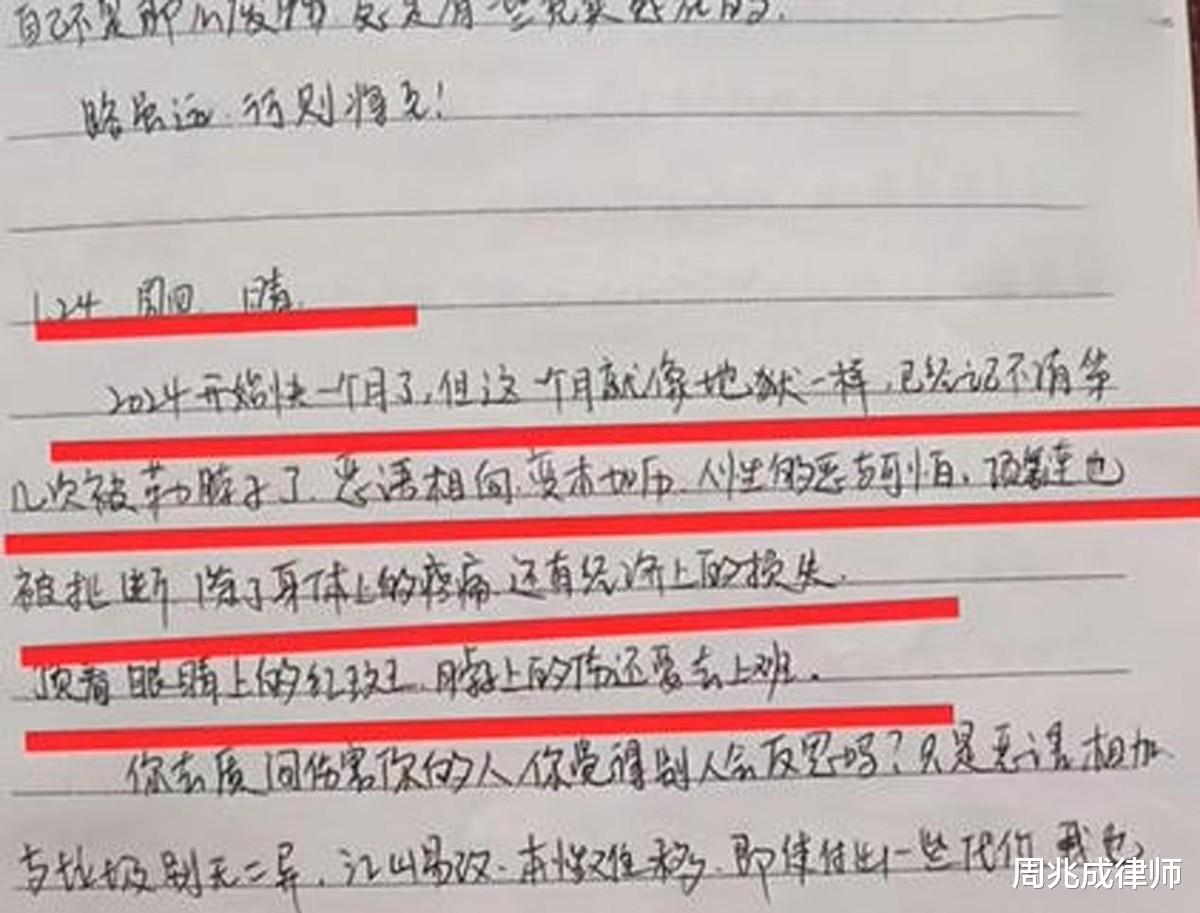 自己不是
路虽远.行则将至!
1.24 周四 晴.
2024开始快一个月了,但这一个月就像地狱一样,已经记不清第
几次被勒脖子了.恶语相向.变本加厉.人性的恶与可怕、项链也
被扯断 除了身体上的疼痛 还有经济上的损失.
顶着眼睛上的红斑、脖子上的伤还要去上班.
你去质问伤害你的人你觉得别人会反思吗?只是恶语相加
与垃圾别无二异.江山易改.本性难移.即使付出一些代价 我也
周兆成律师